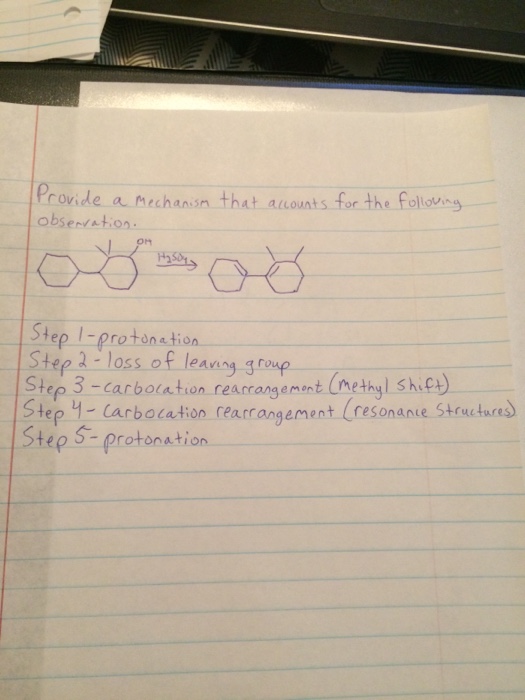 Provide a mechanism that accounts for the following
observation.
OH
H2SO4
Step 1-protonation
Step 2-loss of leaving group
Step 3-carbocation rearrangement (methyl shift)
Step 4-carbocation rearrangement (resonance structures)
Step 5-protonation